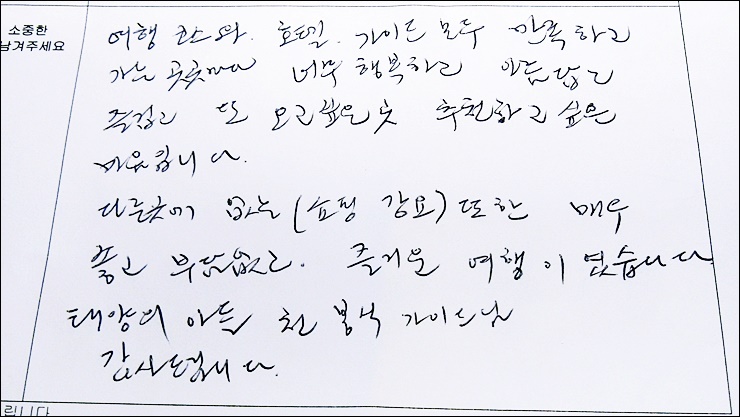 소중한
남겨주세요
여행 코스와. 호텔. 가이드 모두 만족하고
가는 곳곳마다 너무 행복하고 아름답고
즐겁고 또 오고싶은 곳 추천하고 싶은
마음입니다.
다른곳에 없는 (쇼핑 강요) 또한 매우
좋고 부담없고. 즐거운 여행이였습니다
태양의 아들 천봉식 가이드님
감사드립니다.
립니다